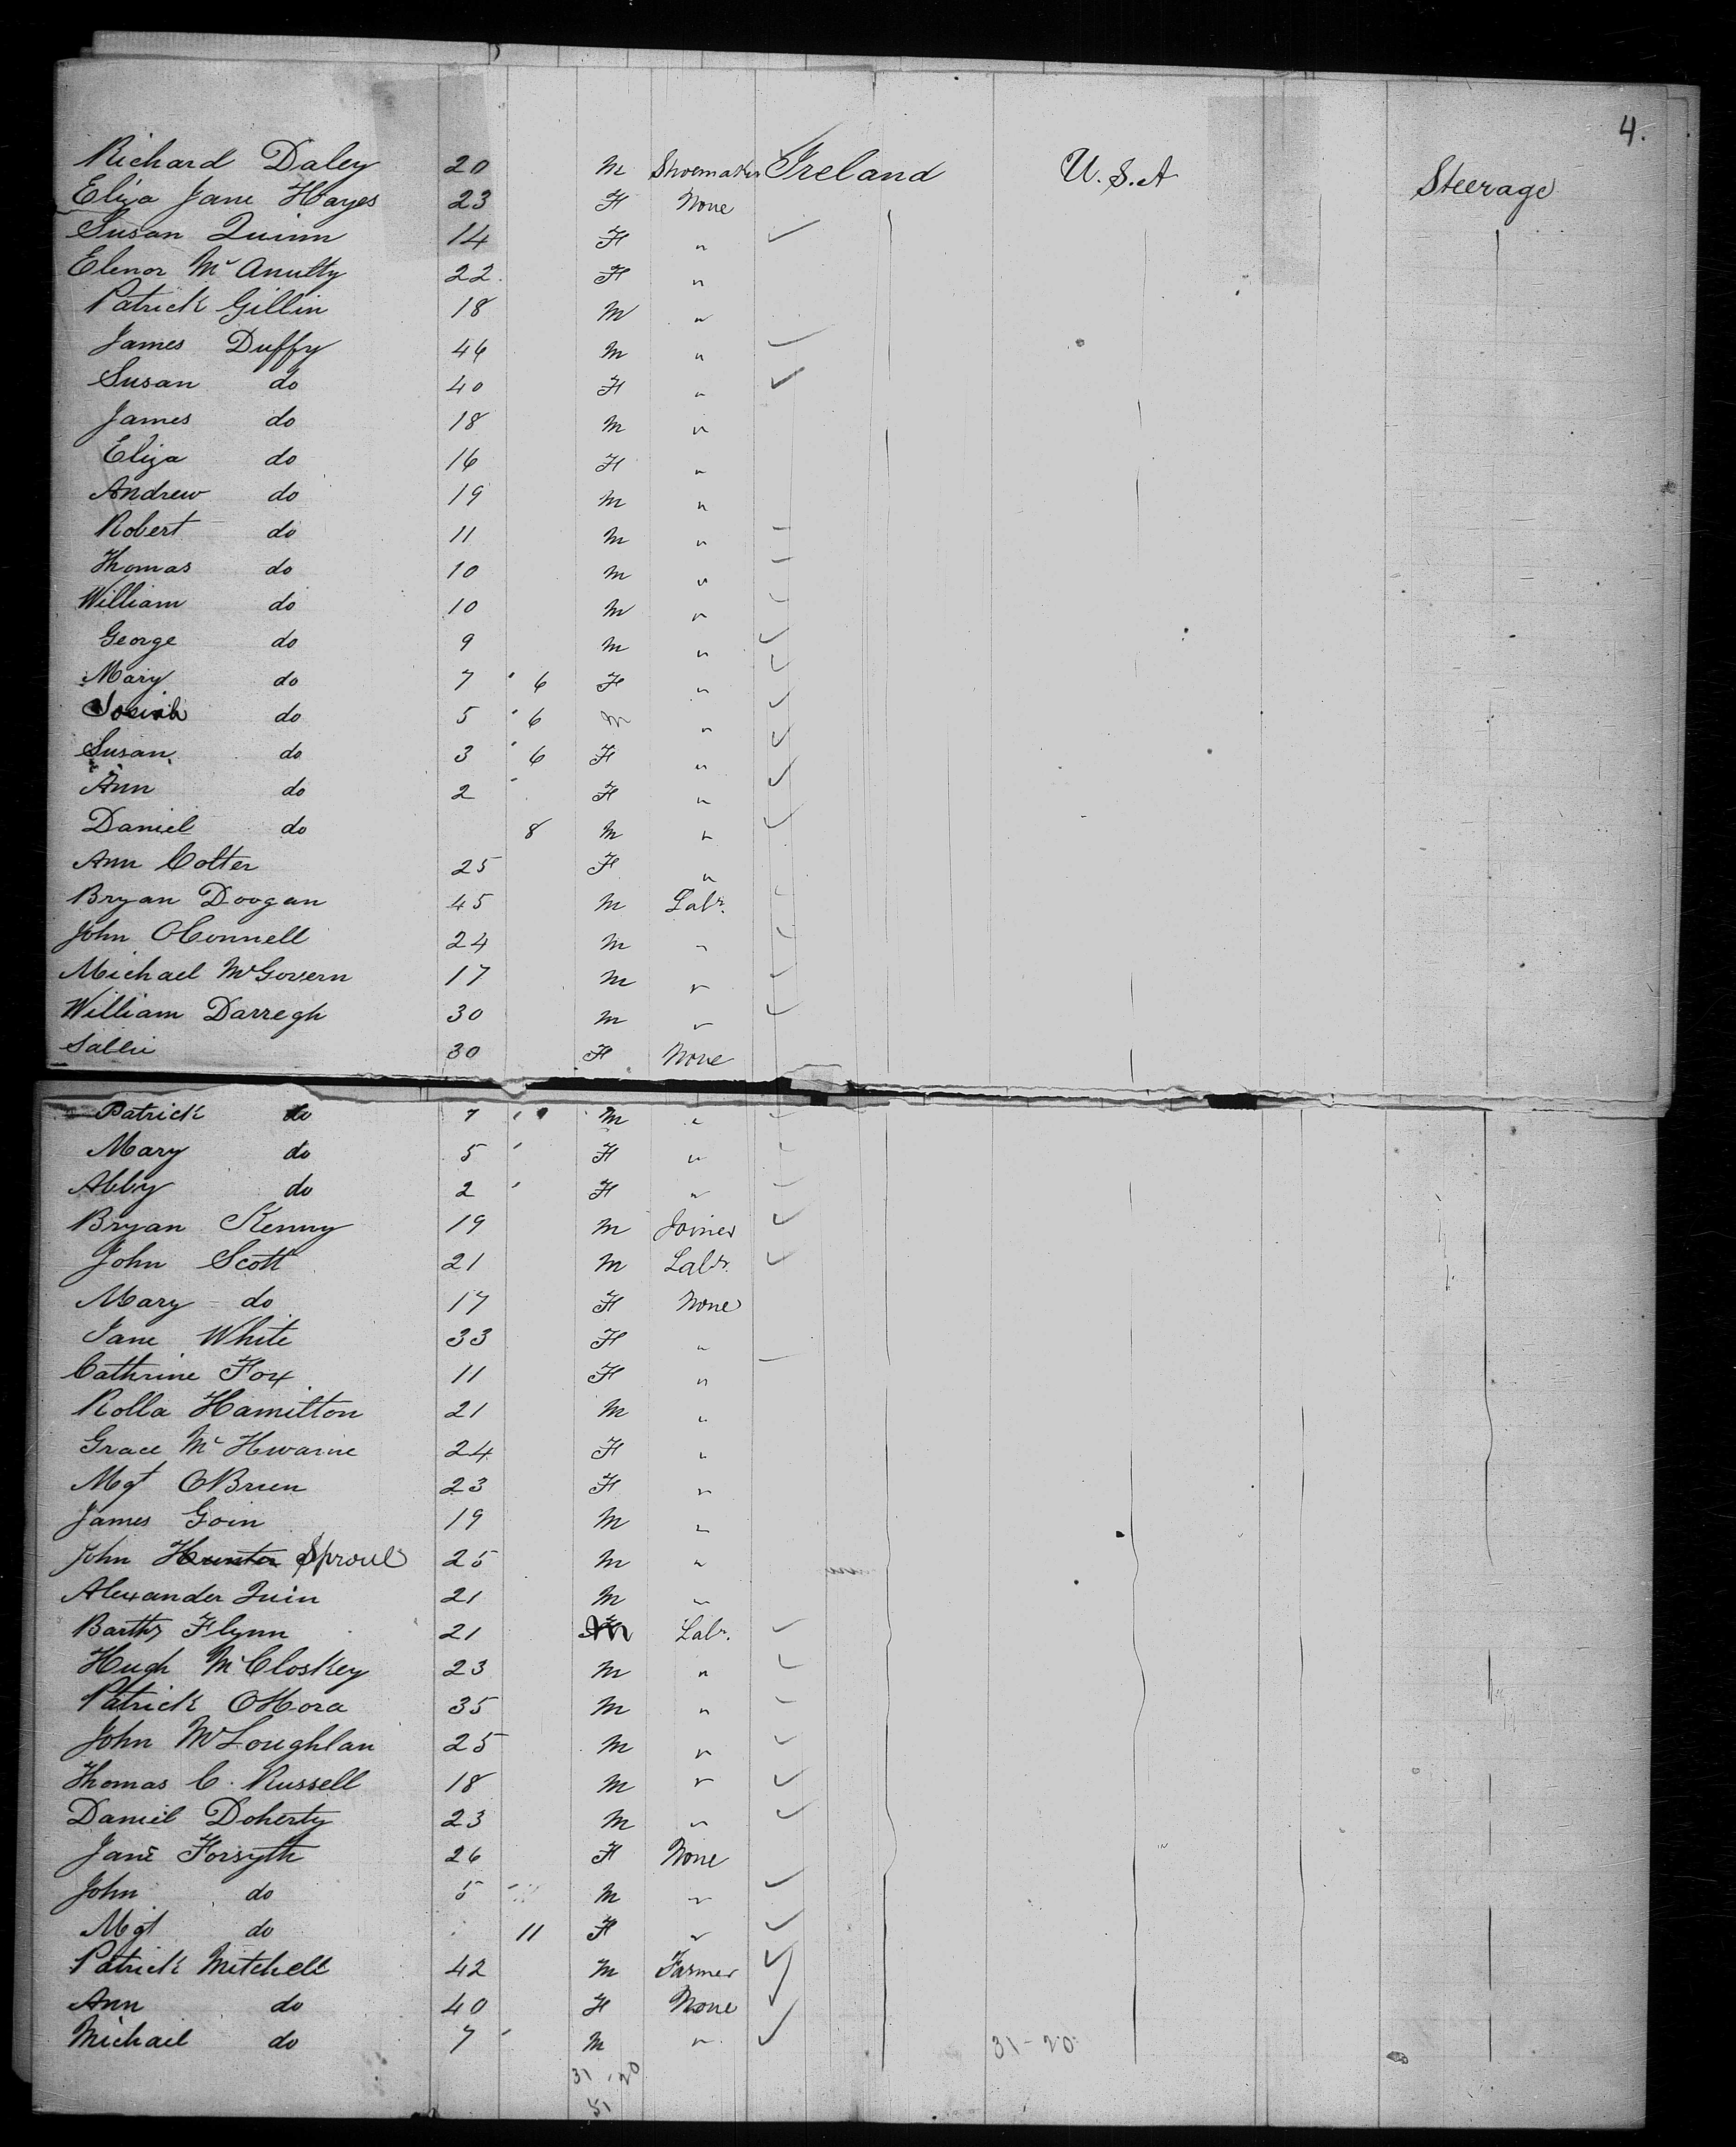 4.
Richard Daley 20 M Shoemaker Ireland U.S.A Steerage
Eliza Jane Hayes 23 F None
Susan Quinn 14 F "
Elenor Mc Anulty 22 F "
Patrick Gillin 18 M "
James Duffy 46 M "
Susan do 40 F "
James do 18 M "
Eliza do 16 F "
Andrew do 19 M "
Robert do 11 M "
Thomas do 10 M "
William do 10 M "
George do 9 M "
Mary do 7 6 F "
Josiah do 5 6 M "
Susan do 3 6 F "
Ann do 2 F "
Daniel do 8 M "
Ann Cotter 25 F "
Bryan Doogan 45 M Labr.
John OConnell 24 M "
Michael McGovern 17 M "
William Darregh 30 M "
Sallie 30 F None
Patrick do 7 M "
Mary do 5 F "
Abby do 2 F "
Bryan Kenny 19 M Joiner
John Scott 21 M Labr.
Mary do 17 F None
Jane White 33 F "
Cathrine Fox 11 F "
Rolla Hamilton 21 M "
Grace Mc 24 F "
Mgt OBrien 23 F "
James Goin 19 M "
John Hunter Sproul 25 M "
Alexander Quin 21 M "
Barthy Flynn 21 M Labr.
Hugh McCloskey 23 M "
Patrick OHora 35 M "
John McLoughlan 25 M "
Thomas C. Russell 18 M "
Daniel Doherty 23 M "
Jane Forsyth 26 F None
John do 5 M "
Mgt do 11 F "
Patrick Mitchell 42 M Farmer
Ann do 40 F None
Michael do 7 M " 31-20
31-20
51